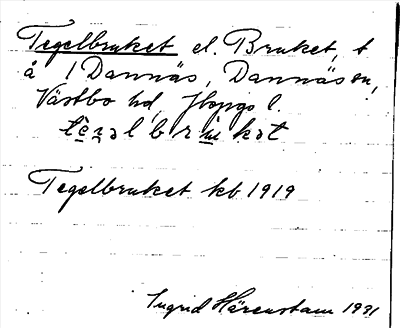 Tegelbruket el. Bruket, t
å 1 Dannäs, Dannäs sn,
Västbo hd, Jkpgs l.
Tegelbruket kb 1919
Ingrid Härenstam 1991